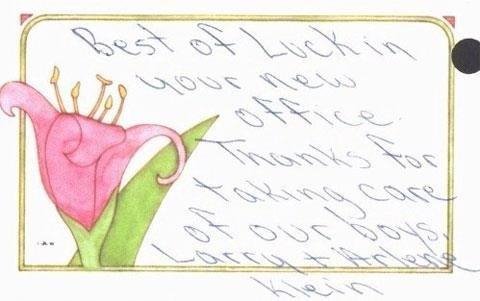 Best of Luck in
your new
office.
Thanks for
taking care
of our boys,
Larry + Arlene
Klein